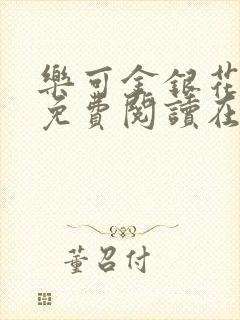 樂可金銀花
免費閱讀在
董召付